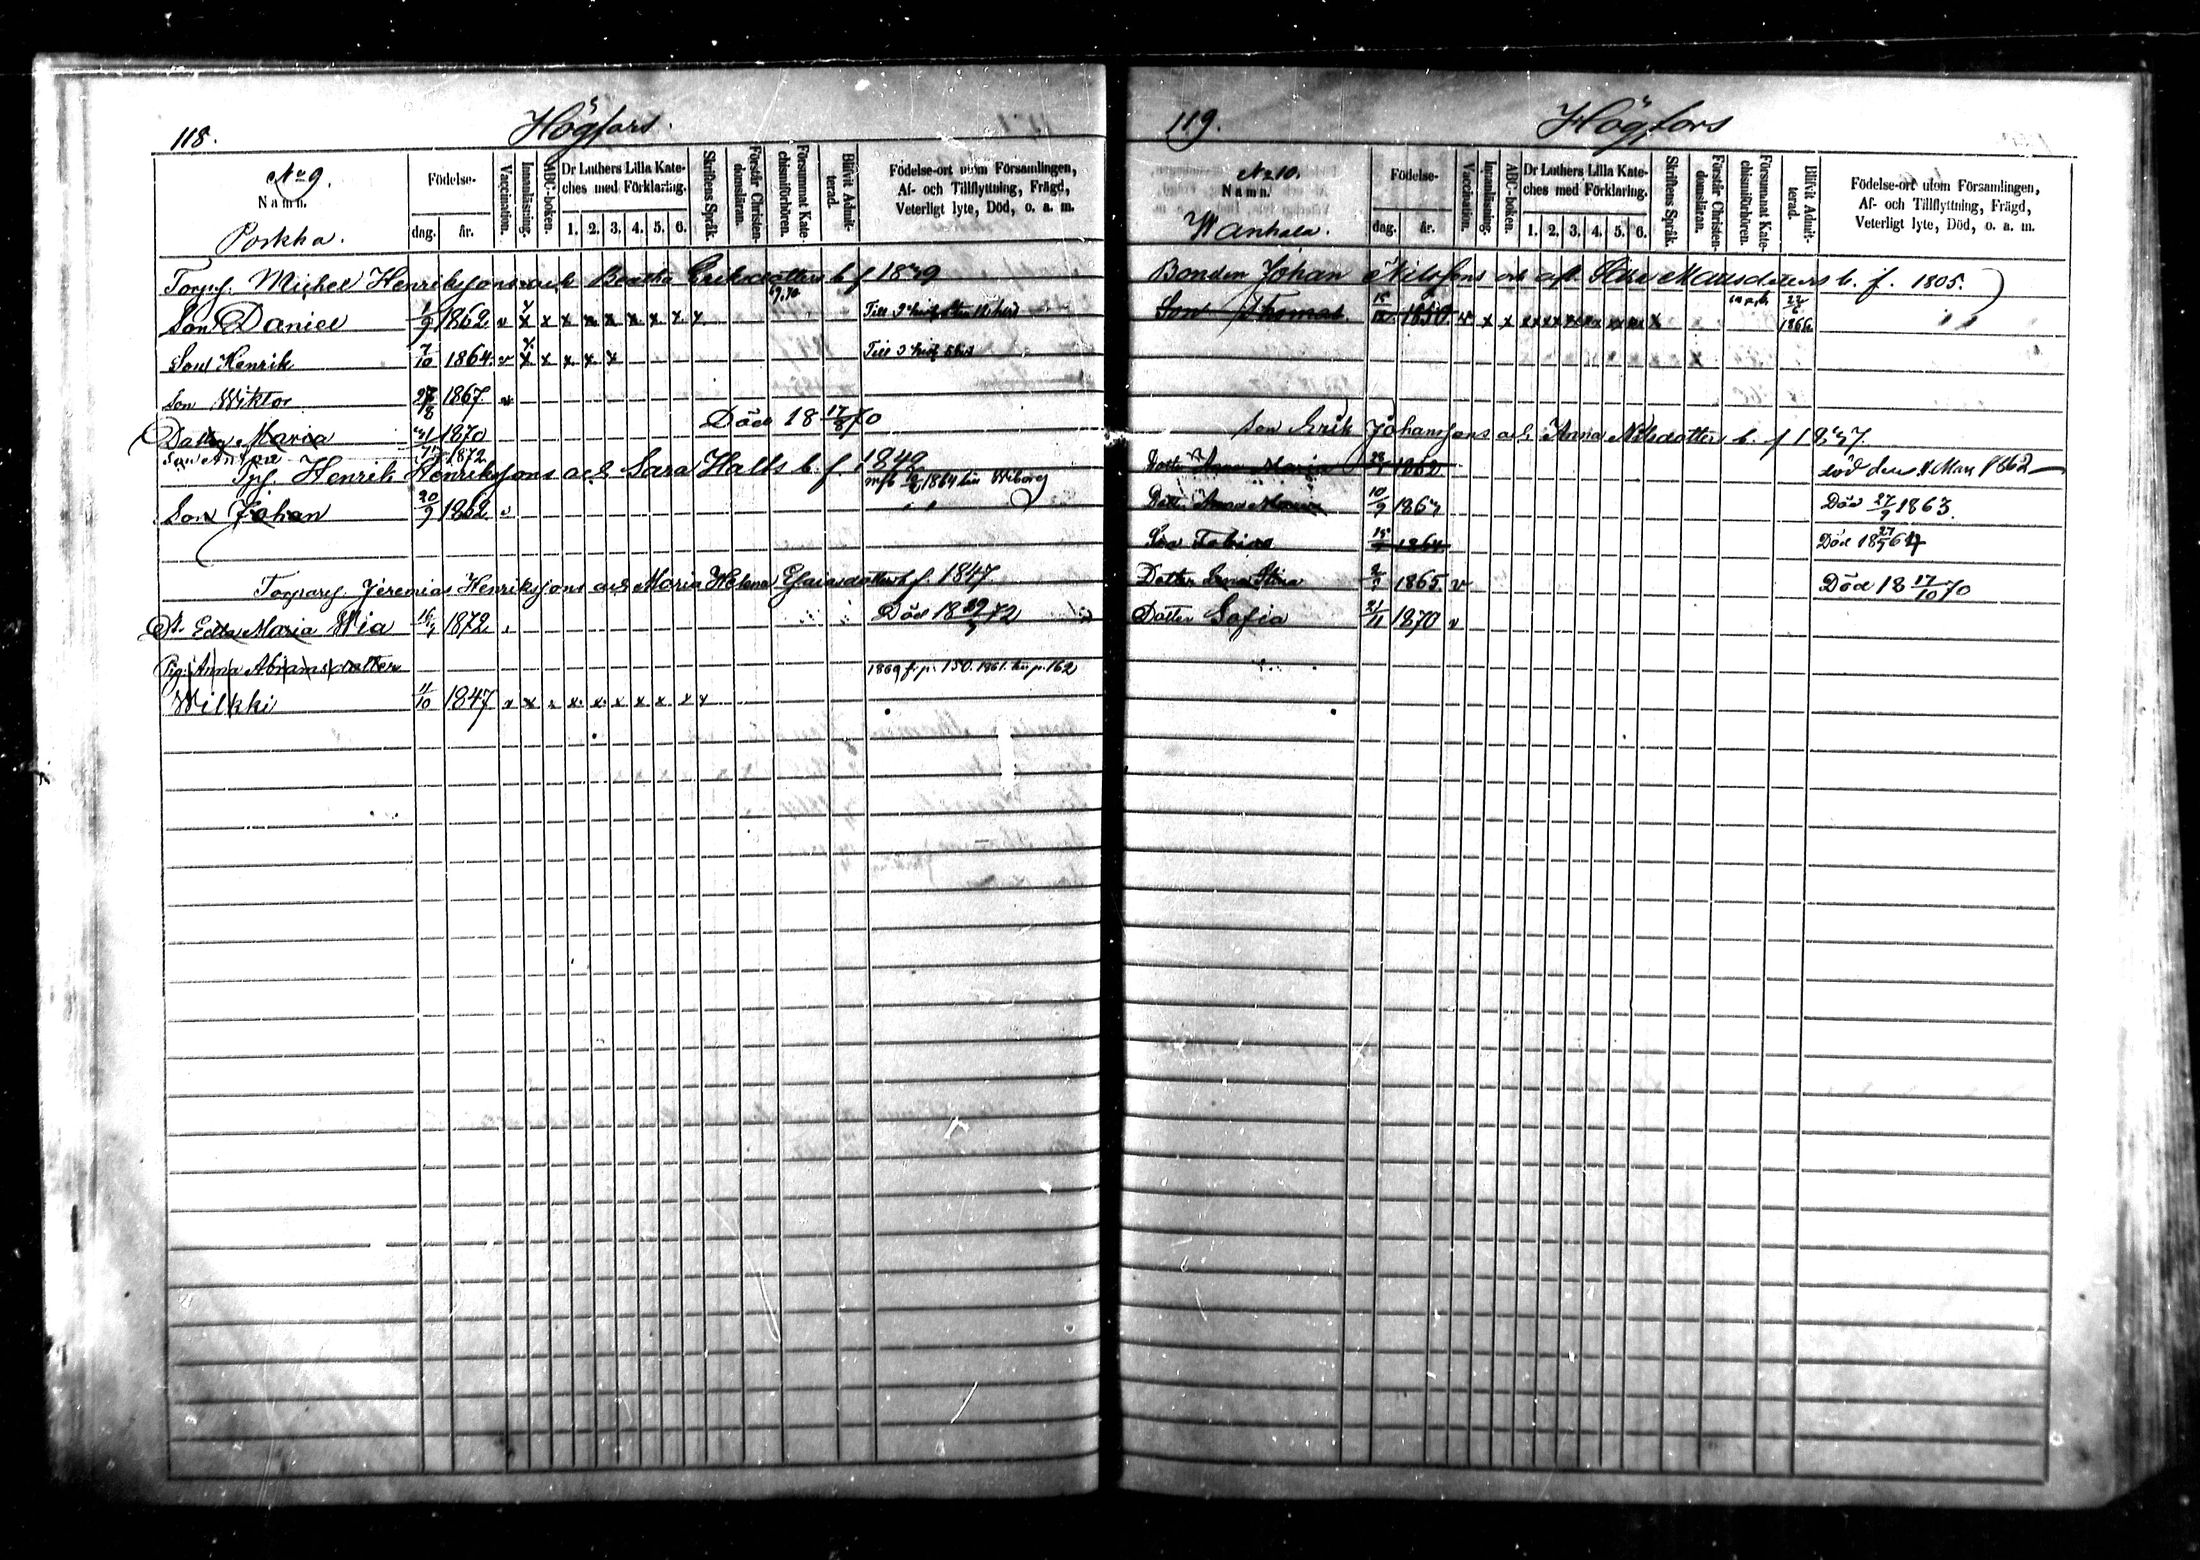 118. Högfors.
No 9.
Namn.
Porkka.
Födelse-
dag. år.
Vaccination.
Innanläsning.
ABC-boken.
Dr Luthers Lilla Kate-
ches med Förklaring.
1. 2. 3. 4. 5. 6.
Skriftens Språk.
Förstår Christen-
domsläran.
Försummat Kate-
chismiförhören.
Blifvit Admit-
terad.
Födelse-ort utom Församlingen,
Af- och Tillflyttning, Frägd,
Veterligt lyte, Död, o. a. m.
Michel Henrikssons och Beatha Eriksdotters b. f. 1849
Son Daniel 1/9 1862 v x x x x x x x x x
Son Henrik 7/10 1864 v x x x x x
Son Wiktor 1867 v
Dotter Maria 1870 Död 18 17/8 70
Son 1872
Henrik Henrikssons och Sara Halls b. f. 1849
Son Johan 20/9 1862 v 1864 till Wiborg
Jeremias Henrikssons och Maria Helena Esaiasdotters b. f. 1847
D. Edla Maria Wia 1872 Död 18 29/5 72
Pig. Anna Abramsdotter 1869 fr. p. 150. p. 162
Wilkki 11/10 1847 v x x x x x x x x x
119. Högfors
No 10.
Namn.
Wanhala.
Födelse-
dag. år.
Vaccination.
Innanläsning.
ABC-boken.
Dr Luthers Lilla Kate-
ches med Förklaring.
1. 2. 3. 4. 5. 6.
Skriftens Språk.
Förstår Christen-
domsläran.
Försummat Kate-
chismiförhören.
Blifvit Admit-
terad.
Födelse-ort utom Församlingen,
Af- och Tillflyttning, Frägd,
Veterligt lyte, Död, o. a. m.
Bonden Johan Nilssons och afl. Mattsdotters b. f. 1805.
Son Thomas 1850 v x x 1866
Son Erik Johanssons och Anna Nilsdotters b. f. 1847.
Dotter Anna Maria 1862 död den 1862
Dotter Anna Maria 10/9 1863 Död 27/9 1863.
Son Tobias 1864 Död 1864
Dotter Lena Stina 1865 v Död 18 17/10 70
Dotter Sofia 21/11 1870 v